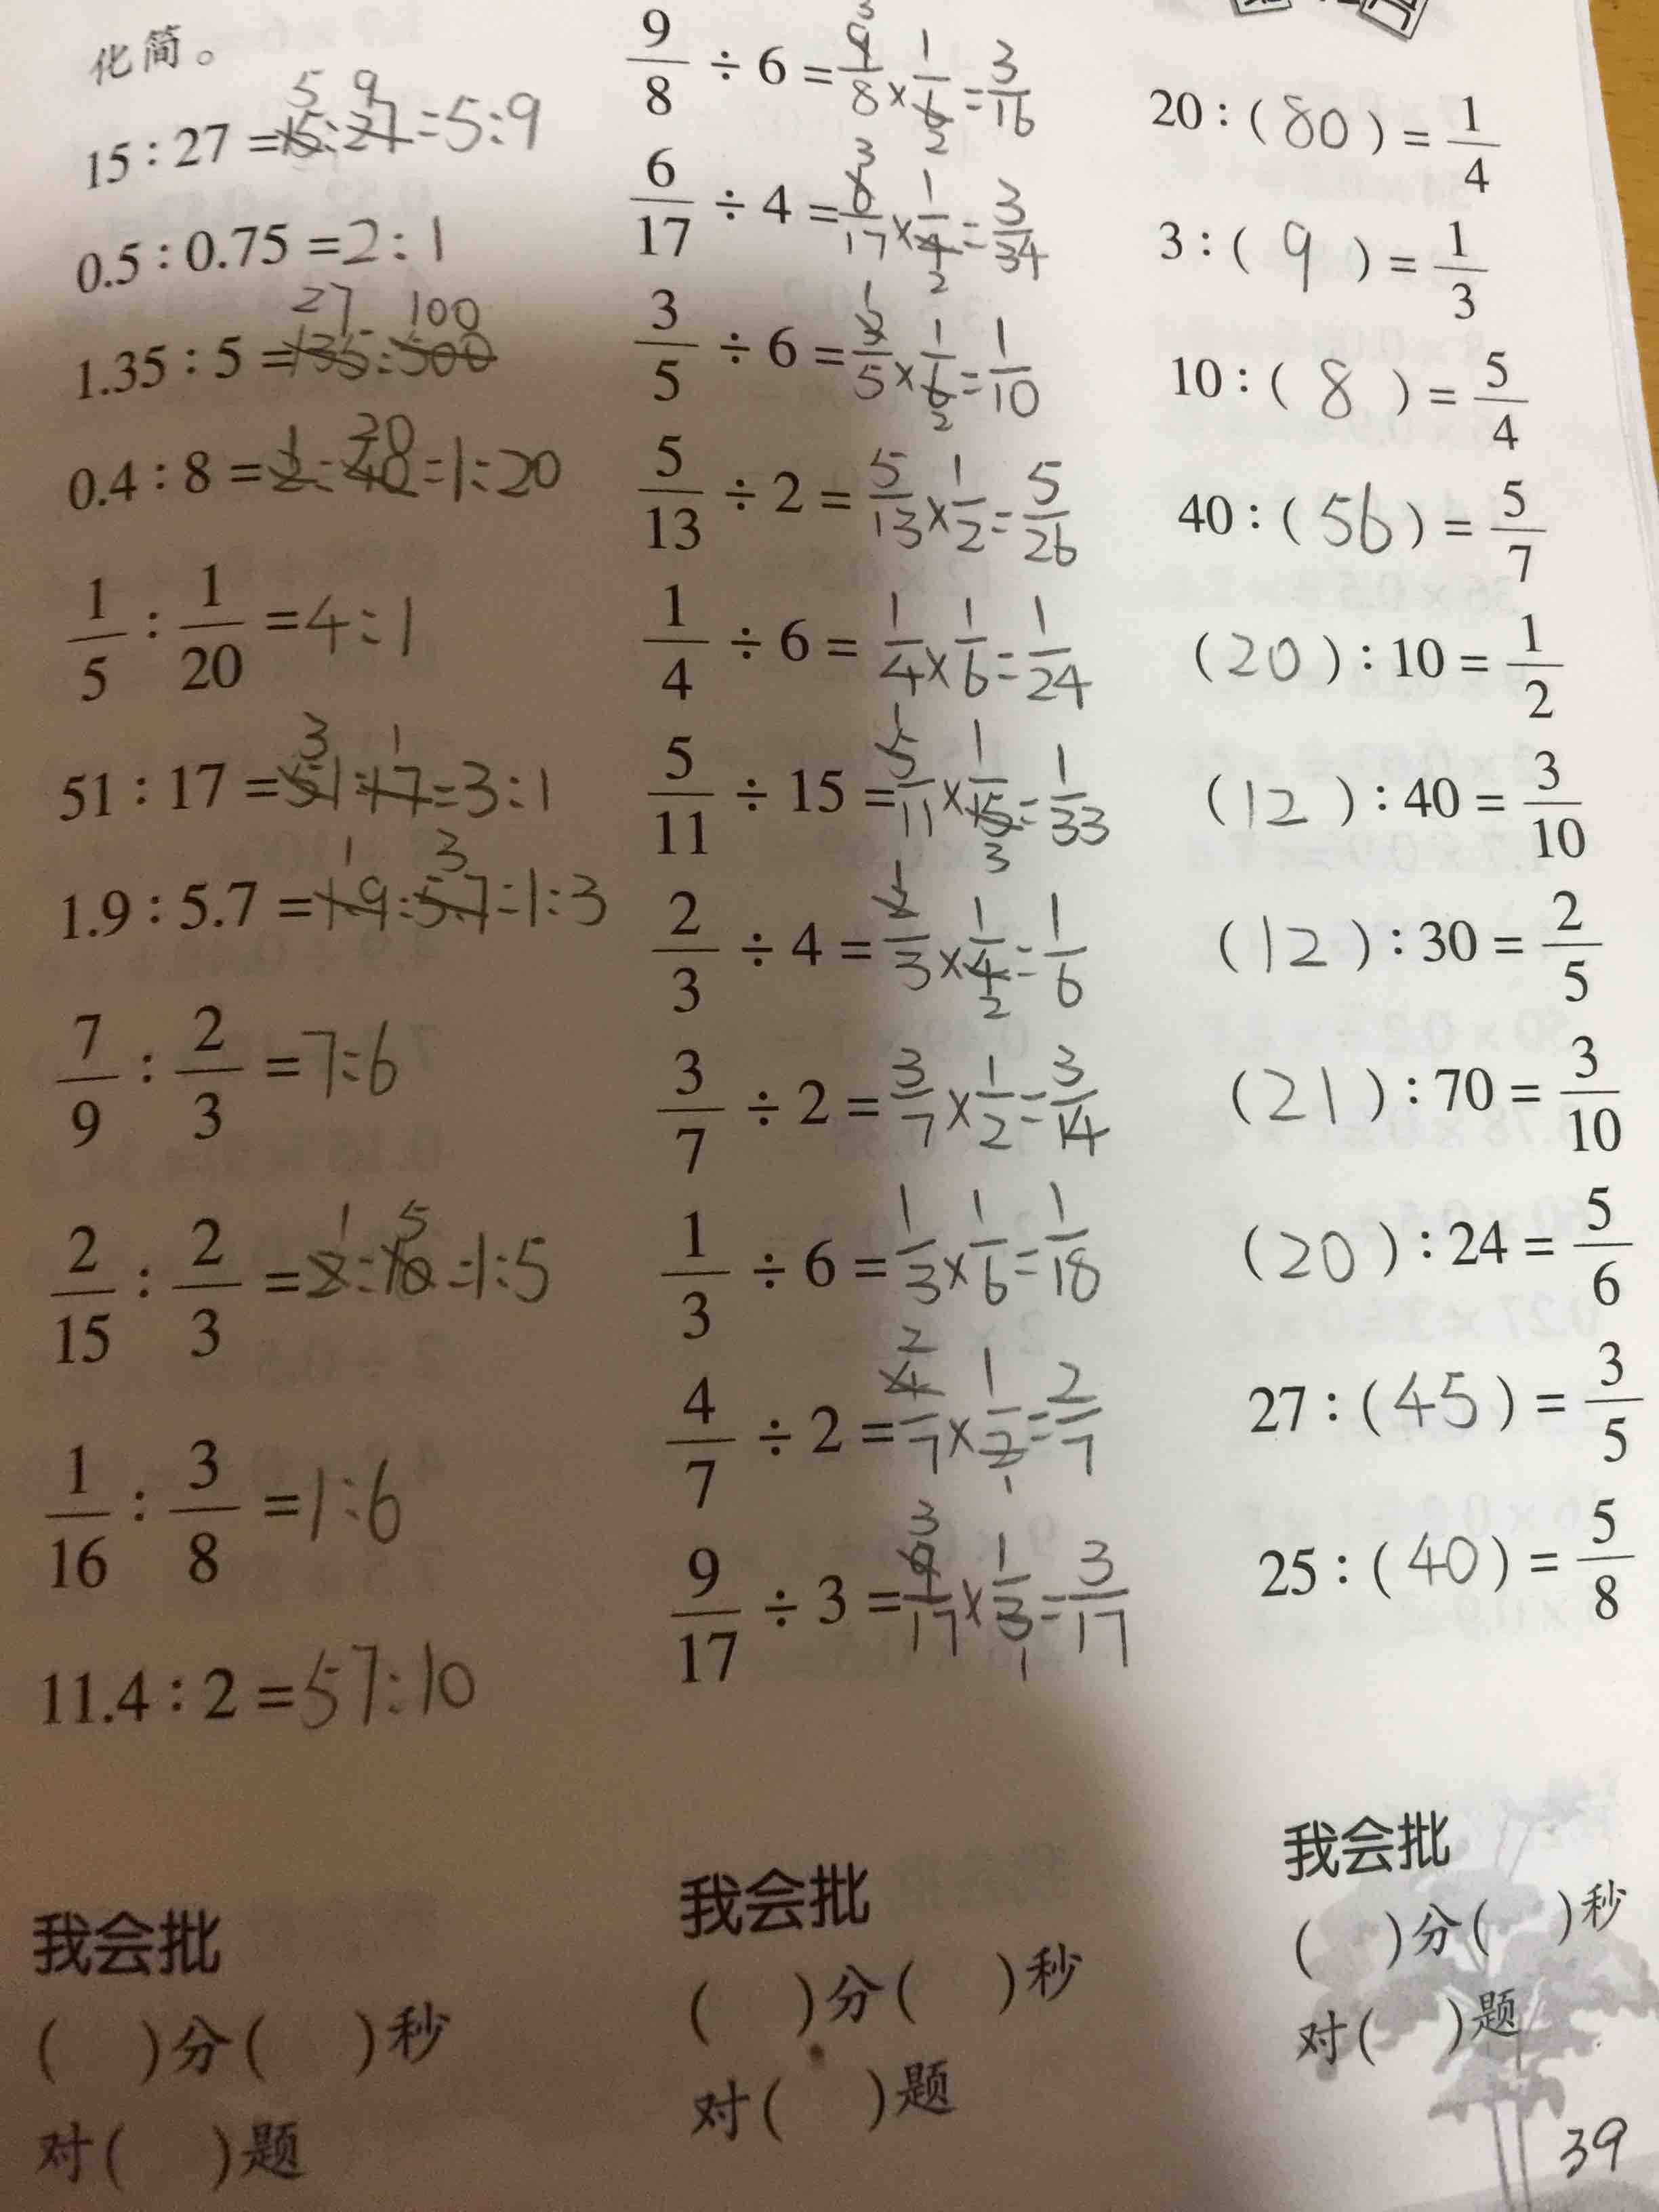 化简。
15 : 27 = 15 : 27 = 5 : 9
5 9
0.5 : 0.75 = 2 : 1
1.35 : 5 = 135 : 500
27 : 100
0.4 : 8 = 2 : 40 = 1 : 20
1 20
1/5 : 1/20 = 4 : 1
51 : 17 = 51 : 17 = 3 : 1
3 1
1.9 : 5.7 = 1.9 : 5.7 = 1 : 3
1 3
7/9 : 2/3 = 7 : 6
2/15 : 2/3 = 2 : 10 = 1 : 5
1 5
1/16 : 3/8 = 1 : 6
11.4 : 2 = 57 : 10
我会批
( )分( )秒
对( )题
9/8 ÷ 6 = 9/8 × 1/6 = 3/16
3 2
6/17 ÷ 4 = 6/17 × 1/4 = 3/34
3 2
3/5 ÷ 6 = 3/5 × 1/6 = 1/10
1 2
5/13 ÷ 2 = 5/13 × 1/2 = 5/26
1/4 ÷ 6 = 1/4 × 1/6 = 1/24
5/11 ÷ 15 = 5/11 × 1/15 = 1/33
1 3
2/3 ÷ 4 = 2/3 × 1/4 = 1/6
1 2
3/7 ÷ 2 = 3/7 × 1/2 = 3/14
1/3 ÷ 6 = 1/3 × 1/6 = 1/18
4/7 ÷ 2 = 4/7 × 1/2 = 2/7
2 1
9/17 ÷ 3 = 9/17 × 1/3 = 3/17
3 1
我会批
( )分( )秒
对( )题
20 : ( 80 ) = 1/4
3 : ( 9 ) = 1/3
10 : ( 8 ) = 5/4
40 : ( 56 ) = 5/7
( 20 ) : 10 = 1/2
( 12 ) : 40 = 3/10
( 12 ) : 30 = 2/5
( 21 ) : 70 = 3/10
( 20 ) : 24 = 5/6
27 : ( 45 ) = 3/5
25 : ( 40 ) = 5/8
我会批
( )分( )秒
对( )题
39